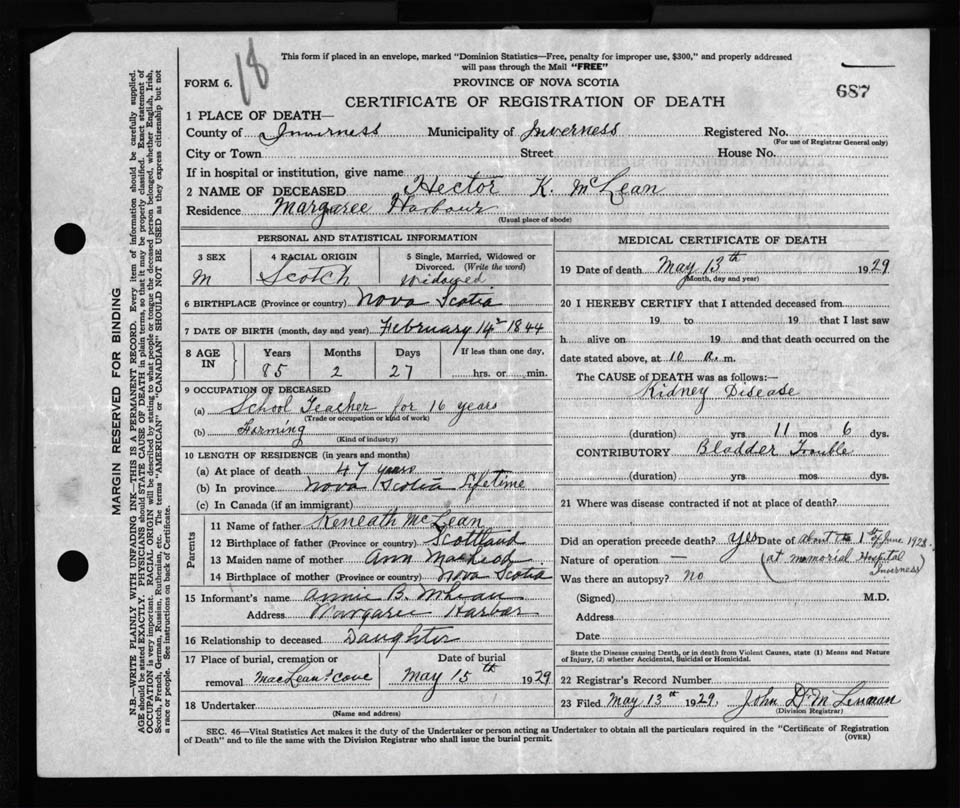 This form if placed in an envelope, marked "Dominion Statistics—Free, penalty for improper use, $300," and properly addressed
will pass through the Mail "FREE"
18
FORM 6.
PROVINCE OF NOVA SCOTIA
687
CERTIFICATE OF REGISTRATION OF DEATH
1 PLACE OF DEATH—
County of Inverness Municipality of Inverness Registered No.
(For use of Registrar General only)
City or Town Street House No.
If in hospital or institution, give name
2 NAME OF DECEASED Hector K. McLean
Residence Margaree Harbour
(Usual place of abode)
PERSONAL AND STATISTICAL INFORMATION
3 SEX 4 RACIAL ORIGIN 5 Single, Married, Widowed or
Divorced. (Write the word)
M Scotch Widowed
6 BIRTHPLACE (Province or country) Nova Scotia
7 DATE OF BIRTH (month, day and year) February 14 1844
8 AGE IN Years Months Days If less than one day,
85 2 27 hrs. or min.
9 OCCUPATION OF DECEASED
(a) School Teacher for 16 years
(Trade or occupation or kind of work)
(b) Farming
(Kind of industry)
10 LENGTH OF RESIDENCE (in years and months)
(a) At place of death 47 years
(b) In province Nova Scotia Lifetime
(c) In Canada (if an immigrant)
Parents
11 Name of father Keneath McLean
12 Birthplace of father (Province or country) Scottland
13 Maiden name of mother Ann
14 Birthplace of mother (Province or country) Nova Scotia
15 Informant's name Annie B.
Address Margaree Harbor
16 Relationship to deceased Daughter
17 Place of burial, cremation or Date of burial
removal MacLean's cove May 15th 1929
18 Undertaker
(Name and address)
MEDICAL CERTIFICATE OF DEATH
19 Date of death May 13th 1929
(Month, day and year)
20 I HEREBY CERTIFY that I attended deceased from
19 to 19 that I last saw
h alive on 19 and that death occurred on the
date stated above, at 10 a. m.
The CAUSE of DEATH was as follows:—
Kidney Disease
(duration) yrs 11 mos 6 dys.
CONTRIBUTORY Bladder Trouble
(duration) yrs mos dys.
21 Where was disease contracted if not at place of death?
Did an operation precede death? yes Date of about the 1st of June 1928
Nature of operation — (at memorial Hospital
Inverness)
Was there an autopsy? no
(Signed) M.D.
Address
Date
State the Disease causing Death, or in death from Violent Causes, state (1) Means and Nature
of Injury, (2) whether Accidental, Suicidal or Homicidal.
22 Registrar's Record Number
23 Filed May 13th 1929, John D.
(Division Registrar)
SEC. 46—Vital Statistics Act makes it the duty of the Undertaker or person acting as Undertaker to obtain all the particulars required in the "Certificate of Registration
of Death" and to file the same with the Division Registrar who shall issue the burial permit.
(OVER)
MARGIN RESERVED FOR BINDING
N.B.—WRITE PLAINLY WITH UNFADING INK—THIS IS A PERMANENT RECORD. Every item of information should be carefully supplied.
AGE should be stated EXACTLY. PHYSICIANS should STATE CAUSE OF DEATH in plain terms, so that it may be properly classified. Exact statement of
OCCUPATION is very important. RACIAL ORIGIN will be described by stating to what people or tongue the deceased person belonged, whether English, Irish,
Scotch, French, German, Russian, Ruthenian, etc. The terms "AMERICAN" or "CANADIAN" SHOULD NOT BE USED as they express citizenship but not
a race or people. See instructions on back of Certificate.